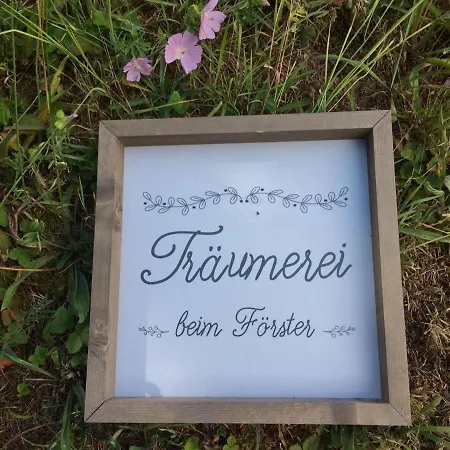 Träumerei
beim Förster